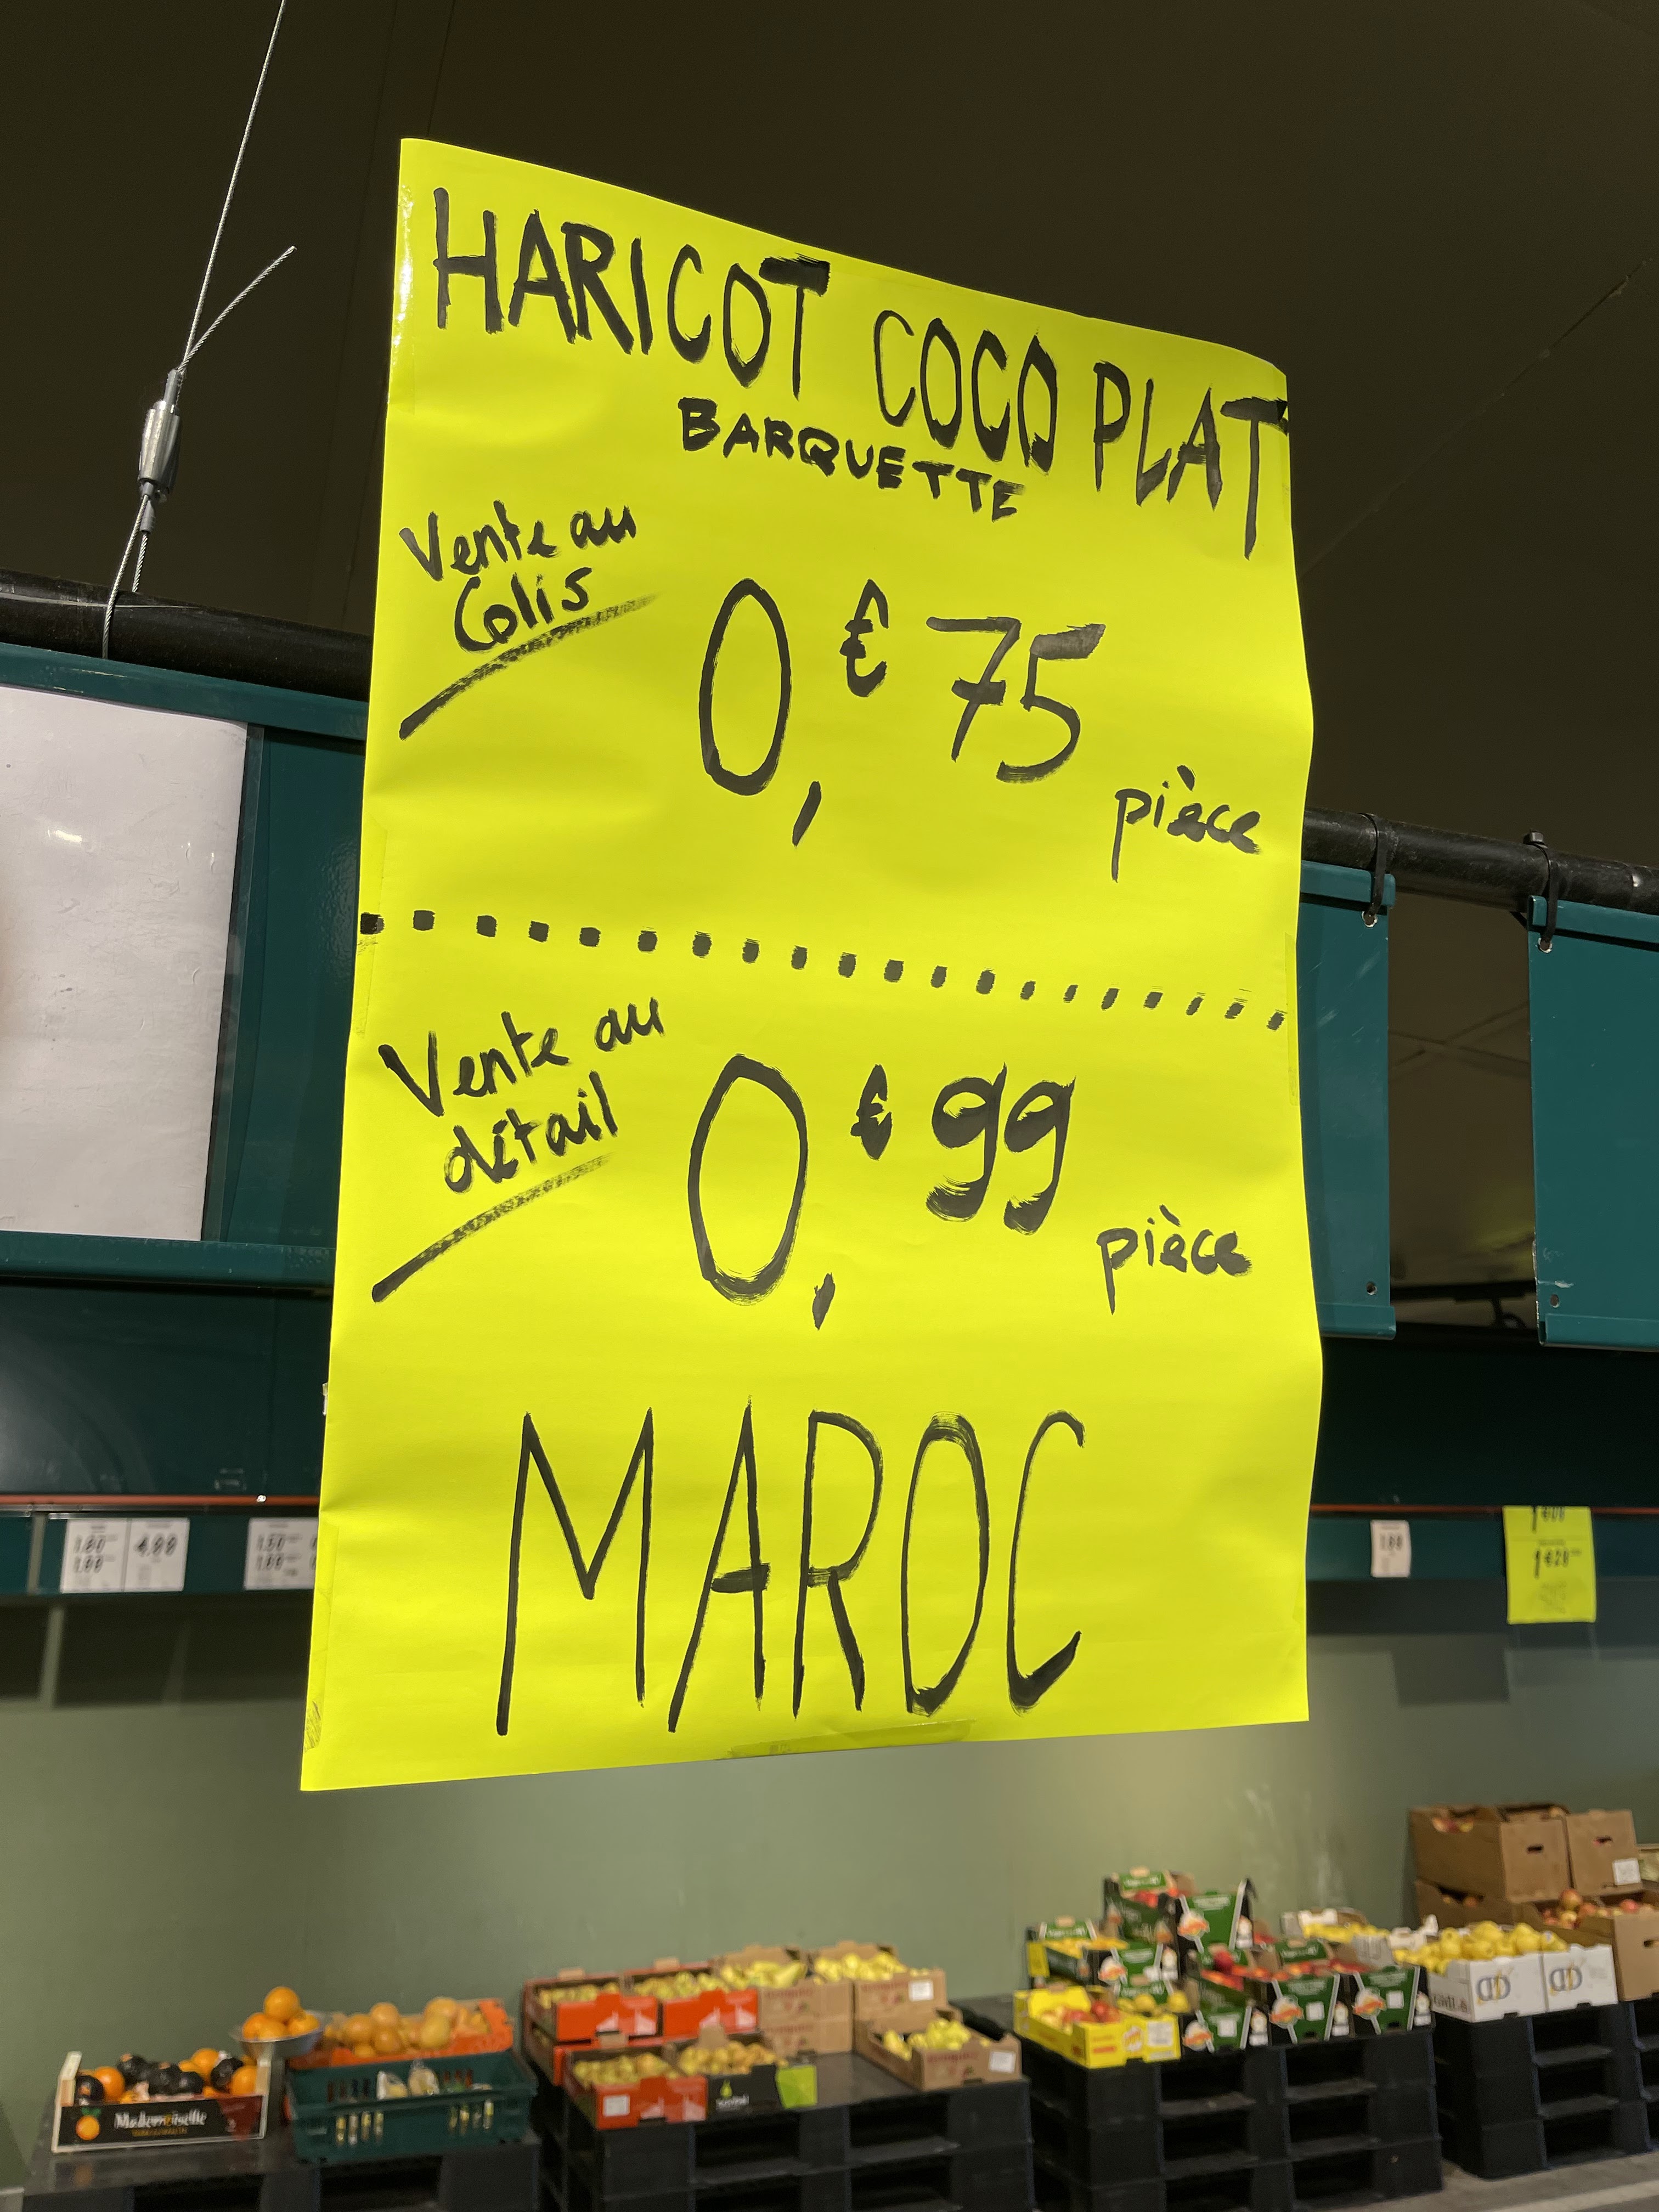 HARICOT COCO PLAT
BARQUETTE
Vente au
Colis
0,€75
pièce
Vente au
détail
0,€99
pièce
MAROC
1€28
Mademoiselle